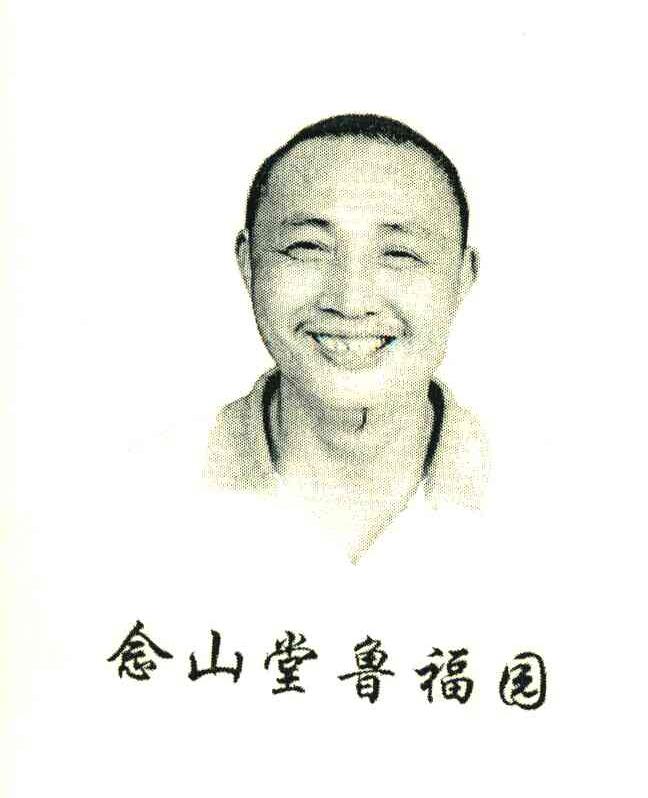 念山堂鲁福国